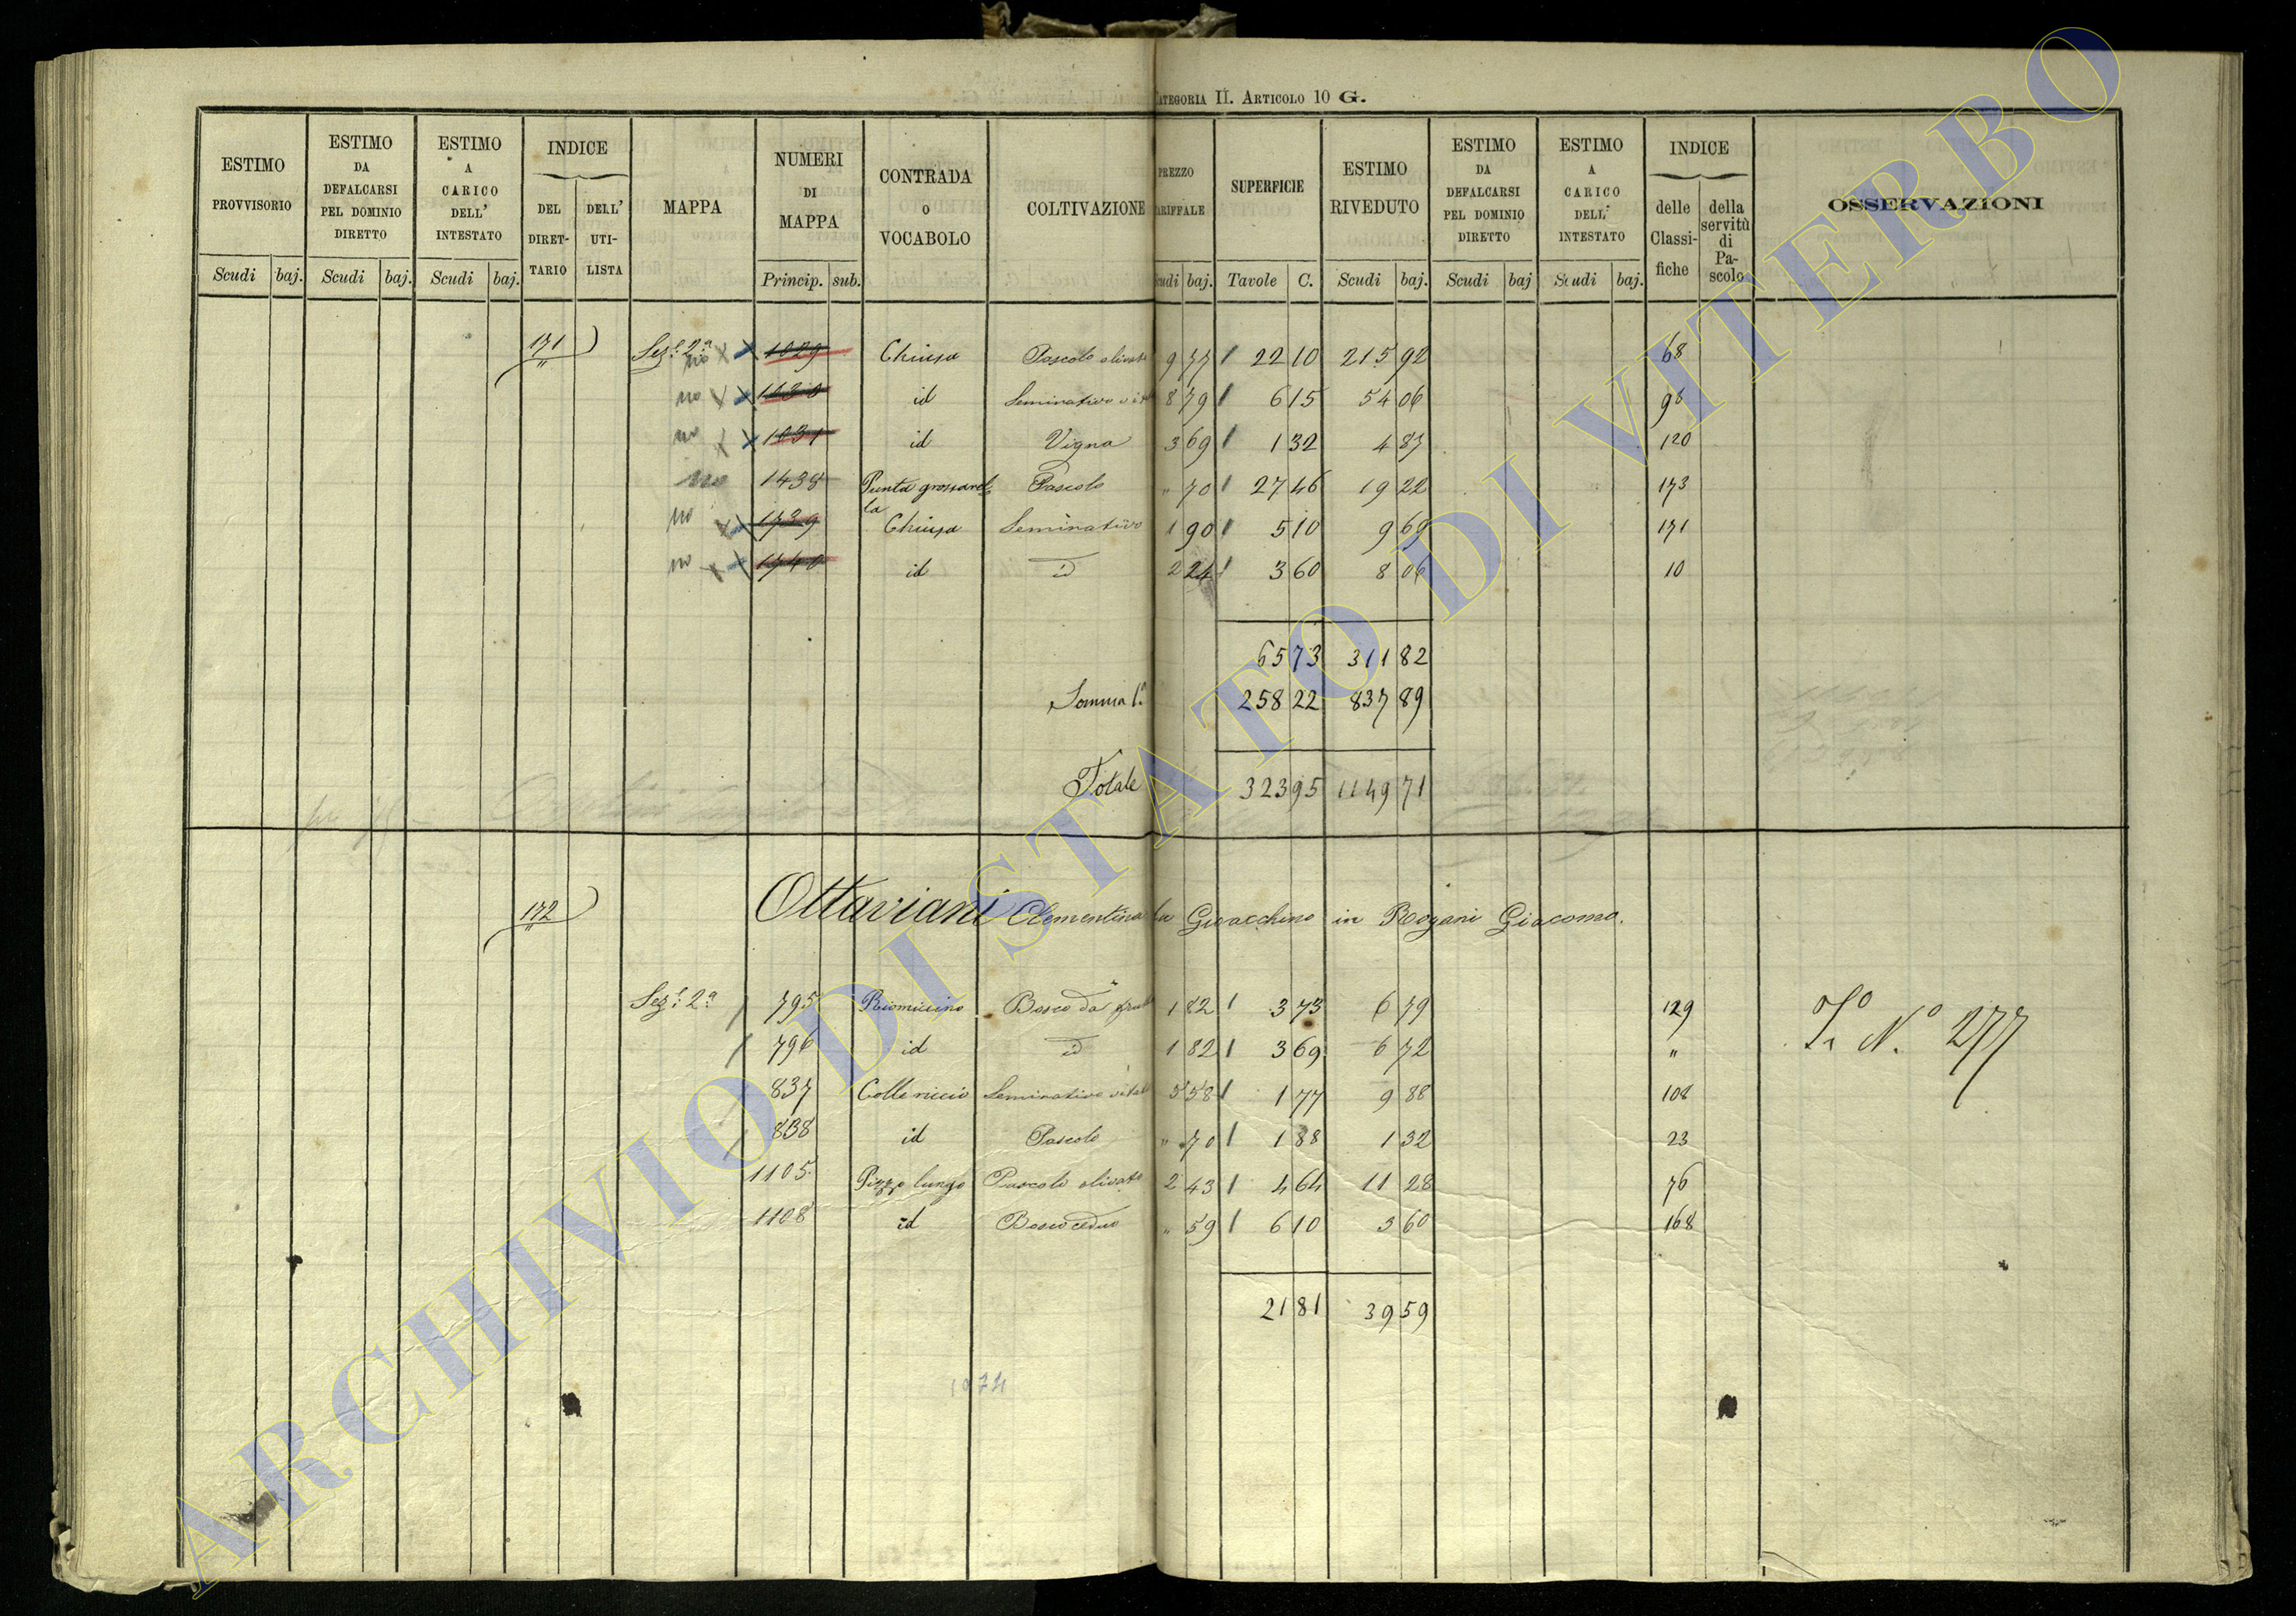 CATEGORIA II. ARTICOLO 10 G.
ESTIMO PROVVISORIO Scudi baj.
ESTIMO DA DEFALCARSI PEL DOMINIO DIRETTO Scudi baj.
ESTIMO A CARICO DELL' INTESTATO Scudi baj.
INDICE DEL DIRETTARIO DELL' UTILISTA
MAPPA
NUMERI DI MAPPA Princip. sub.
CONTRADA O VOCABOLO
COLTIVAZIONE
PREZZO TARIFFALE Scudi baj.
SUPERFICIE Tavole C.
ESTIMO RIVEDUTO Scudi baj.
ESTIMO DA DEFALCARSI PEL DOMINIO DIRETTO Scudi baj
ESTIMO A CARICO DELL' INTESTATO Scudi baj.
INDICE delle Classifiche della servitù di Pascolo
OSSERVAZIONI
171 Sez.e 2a no 1029 Chiusa Pascolo olivato 9 77 22 10 215 92 68
no 1030 id Seminativo vit 8 79 6 15 54 06 96
no 1031 id Vigna 3 69 1 32 4 87 120
no 1438 Punta grossarella Pascolo " 70 27 46 19 22 173
no 1739 Chiusa Seminativo 1 90 5 10 9 69 171
no 1740 id id 2 24 3 60 8 06 10
65 73 311 82
Somma 1a 258 22 837 89
Totale 323 95 1149 71
172 Ottaviani Clementina fu Gioacchino in Rogani Giacomo.
Sez.e 2a 795 Riomicino Bosco da frutt 1 82 3 73 6 79 129
796 id id 1 82 3 69 6 72 "
837 Colle riccio Seminativo vitat 5 58 1 77 9 88 108
838 id Pascolo " 70 1 88 1 32 23
1105 Pizzo lungo Pascolo olivato 2 43 4 64 11 28 76
1108 id Bosco ceduo " 59 6 10 3 60 168
N.o 277
21 81 39 59
ARCHIVIO DI STATO DI VITERBO